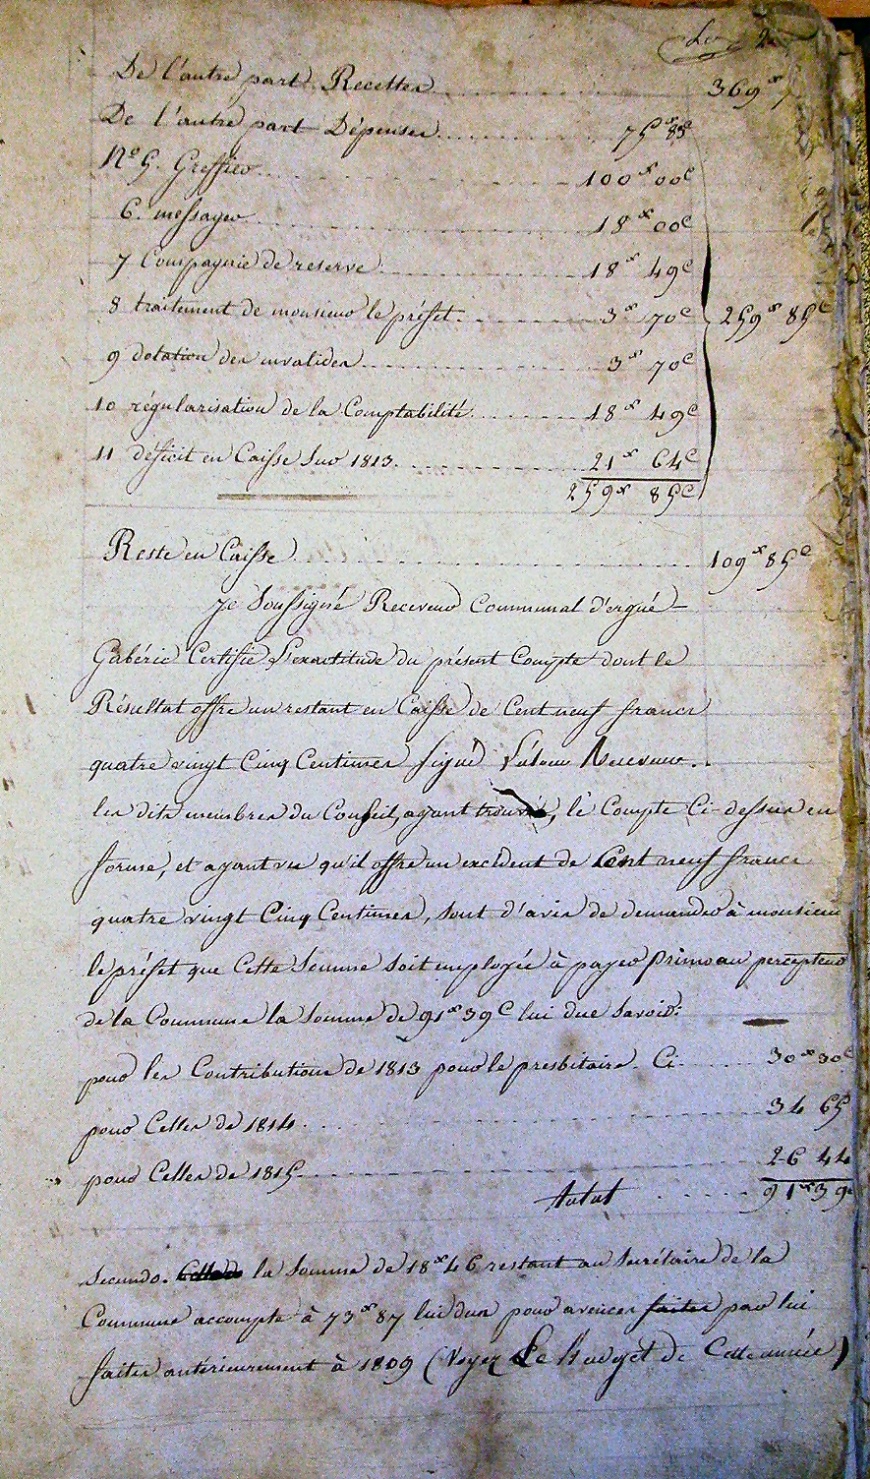 De l'autre part Recettes 369 x 7
De l'autre part Dépenses 75 x 83c
N° 5. Greffier 100 x 00c
6. messager 18 x 00c
7 Compagnie de reserve 18 x 49c
8 traitement de monsieur le préfet 3 x 70c 259 x 85c
9 dotation des invalides 3 x 70c
10 régularisation de la Comptabilité 18 x 49c
11 déficit en Caisse sur 1813 21 x 64c
259 x 85c
Reste en Caisse 109 x 85c
Je Soussigné Receveur Communal d'ergué-
Gabéric Certifie L'exactitude du présent Compte dont le
Résultat offre un restant en Caisse de Cent neuf francs
quatre vingt Cinq Centimes signé Receveur..
les dits membres du Conseil, ayant trouvé, le Compte Ci-dessus en
forme, et ayant vu qu'il offre un excident de Cent neuf francs
quatre vingt Cinq Centimes, sont d'avis de demander à monsieur
le préfet que Cette Somme soit employée à payer primo au percepteur
de la Commune la Somme de 91 x 39c lui due savoir:
pour les Contributions de 1813 pour le presbitaire. Ci 30 x 30c
pour Celles de 1814 34 65
pour Celles de 1815 26 44
total 91 x 39
Secundo. la Somme de 18 x 46 restant au Secrétaire de la
Commune accompte à 73 x 87 lui dus pour avences faites par lui
faites antérieurement à 1809 (Voyez Le Budget de Cette année)